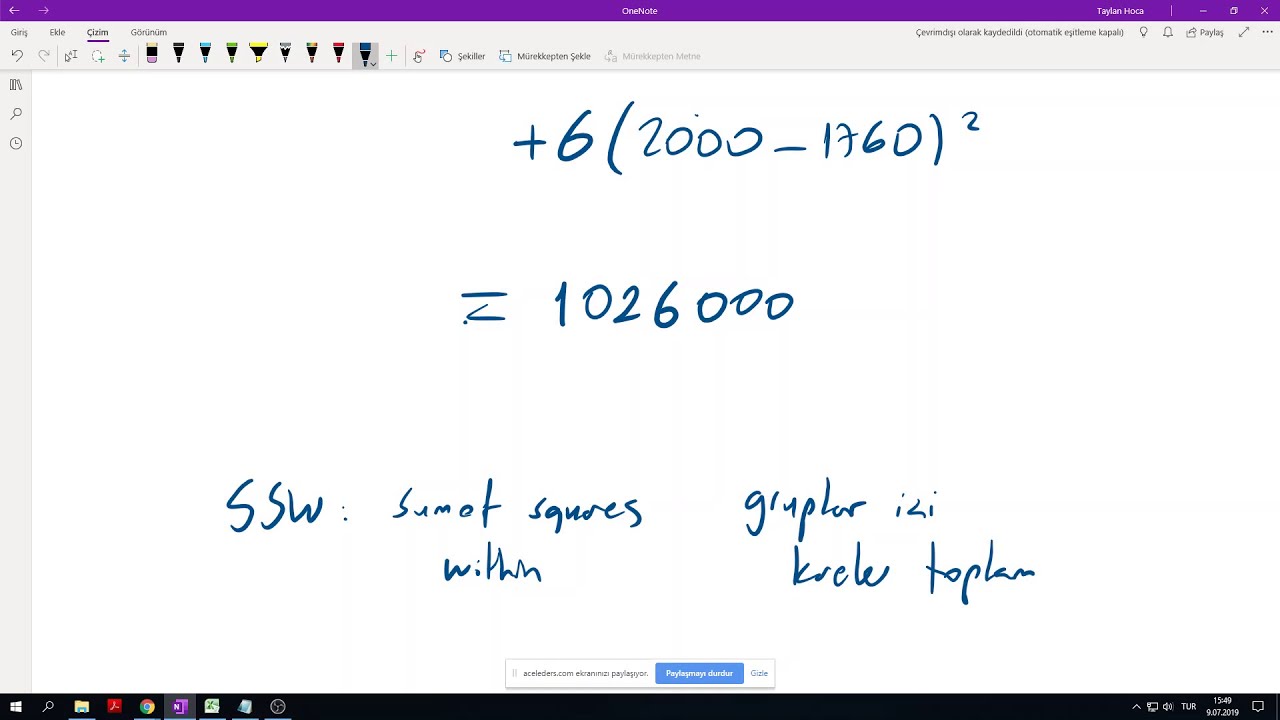 OneNote
Taylan Hoca
Giriş Ekle Çizim Görünüm
Çevrimdışı olarak kaydedildi (otomatik eşitleme kapalı) Paylaş
Şekiller Mürekkepten Şekle Mürekkepten Metne
+6(2000-1760)²
= 1026000
SSW: sum of squares gruplar içi
within kareler toplam
aceleders.com ekranınızı paylaşıyor. Paylaşmayı durdur Gizle
TUR 15:49
9.07.2019